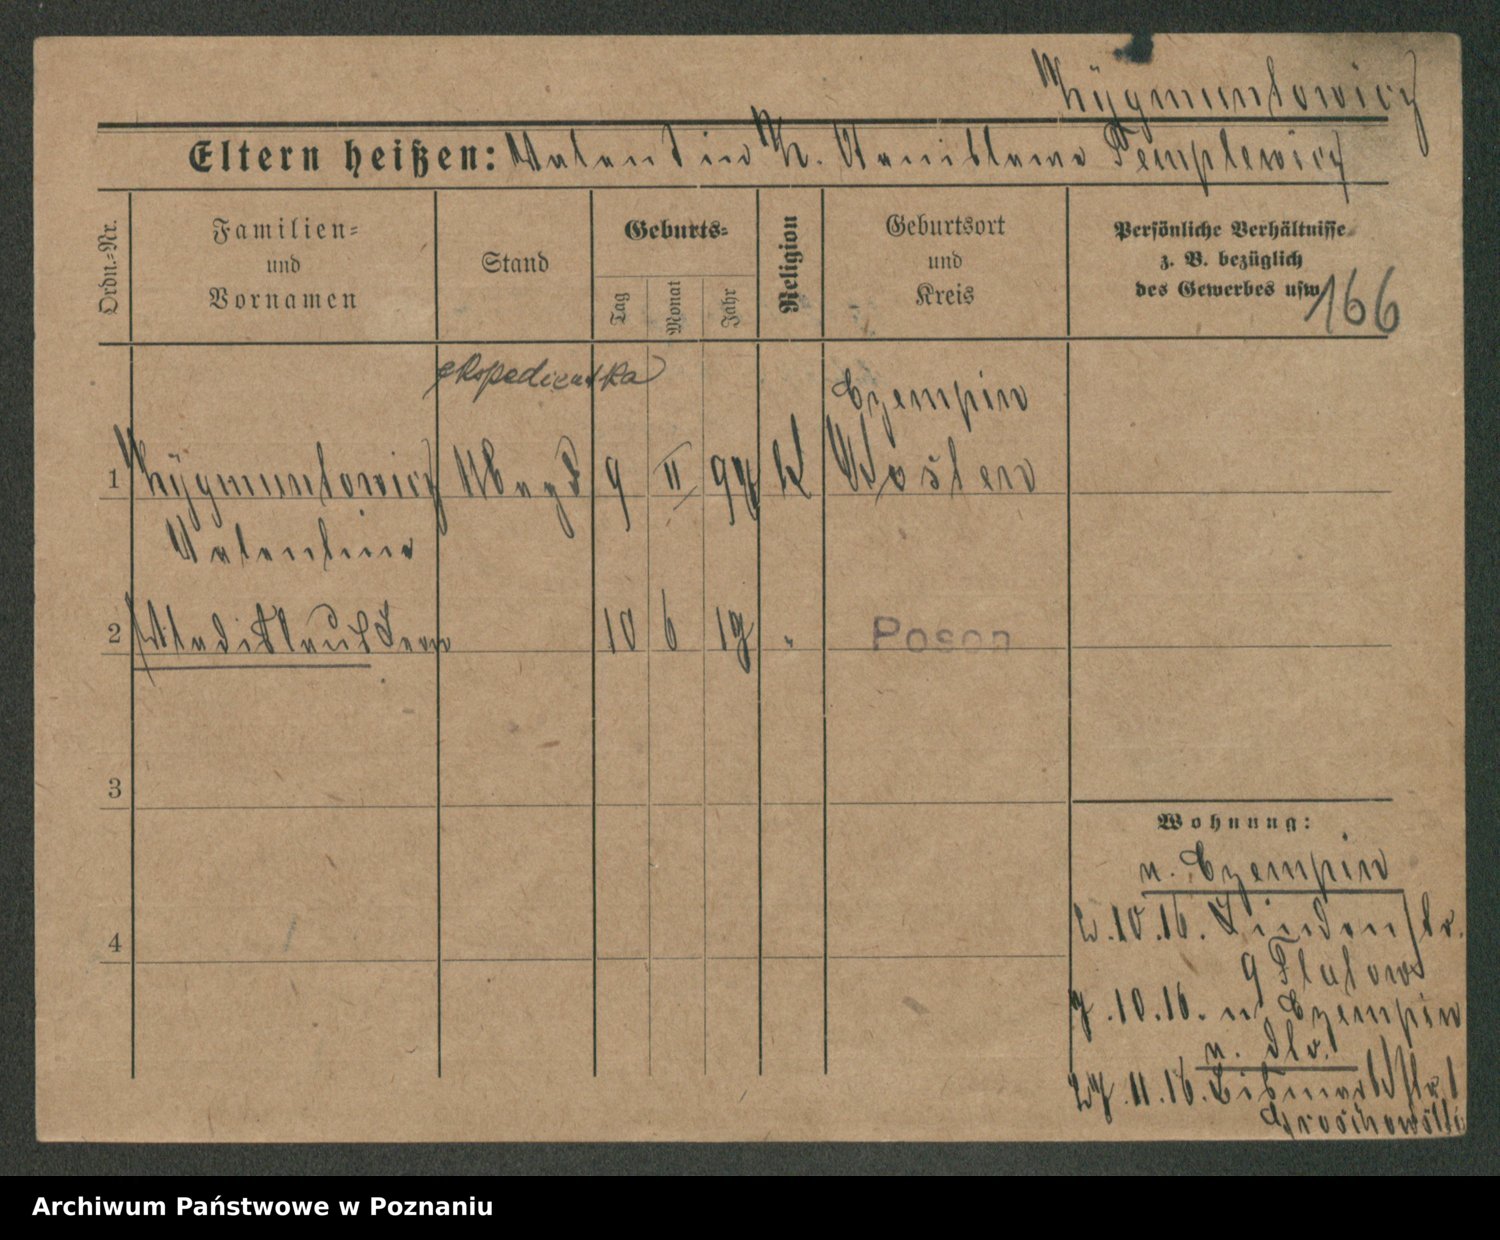 Zÿgmuntowicz
Eltern heißen: Valentin Z. Stanislawa Templewicz
Ordn.-Nr.
Familien-
und
Vornamen
Stand
Geburts-
Tag
Monat
Jahr
Religion
Geburtsort
und
Kreis
Persönliche Verhältnisse
z. B. bezüglich
des Gewerbes usw.
166
ekspedientka
Czempin
1 Zÿgmuntowicz Magd 9 II 97 K Kosten
Valentine
2 Wladislaus 10 6 19 " Posen
3
Wohnung:
n. Czempin
2.10.16. Lindenstr.
9 Flatow
4
7.10.16. n. Czempin
n. dto.
27.11.16. Bismarckstr. 1
Grochowski
Archiwum Państwowe w Poznaniu